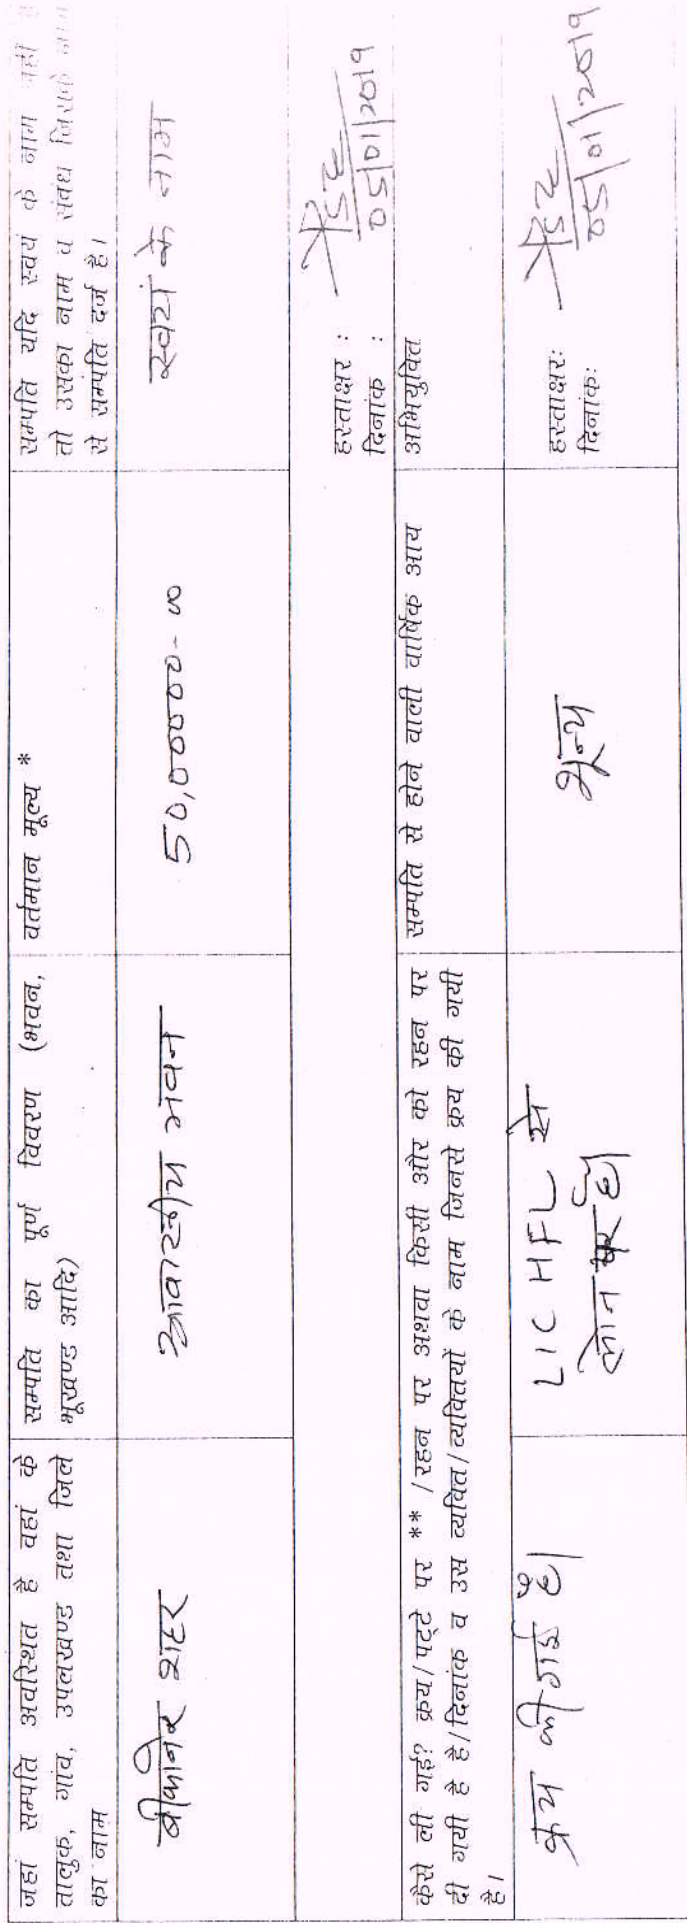 जहां सम्पति अवस्थित है वहां के
तालुक, गांव, उपलखण्ड तथा जिले
का नाम
सम्पति का पूर्ण विवरण (भवन,
भूखण्ड आदि)
वर्तमान मूल्य *
सम्पति यदि स्वयं के नाम नहीं है
तो उसका नाम व संबंध जिसके नाम
से सम्पति दर्ज है।
बीकानेर शहर
आवासीय भवन
50,00000-00
स्वयं के नाम
हस्ताक्षर :
दिनांक : 05/01/2019
कैसे ली गई? क्रय/पट्टे पर ** /रहन पर अथवा किसी और को रहन पर
दी गयी है है/दिनांक व उस व्यक्ति/व्यक्तियों के नाम जिनसे क्रय की गयी
है।
सम्पति से होने वाली वार्षिक आय
अभियुक्ति
क्रय की गई है।
LIC HFL से
लोन है।
शून्य
हस्ताक्षर:
दिनांक: 05/01/2019